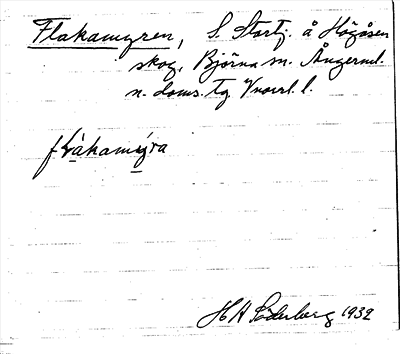 Flakamyren, S. Stortj. å Högåsen
skog, Björna sn. Ångerml.
n. doms. tg. Vnorrl. l.
flàkamýra
H A Söderberg 1932